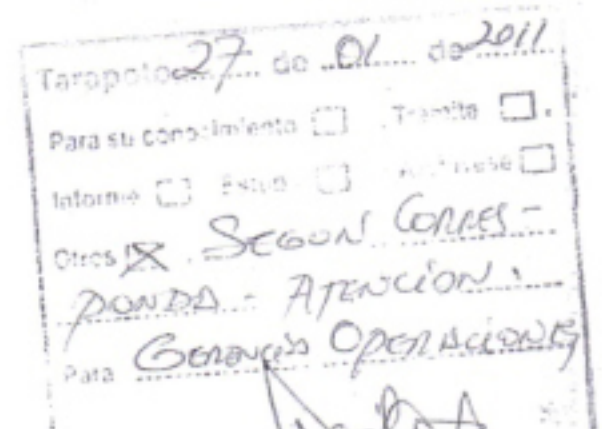 Tarapoto 27 de 01 de 2011
Para su conocimiento Tramite
Informe Archivese
Otros X SEGUN CORRES-
PONDA - ATENCION.
Para GERENCIA OPERACIONES